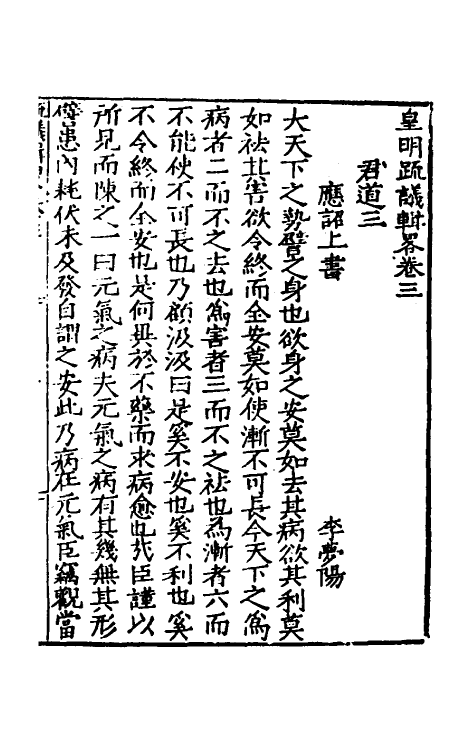 皇明疏議輯畧卷三
君道三
應詔上書　李夢陽
夫天下之勢譬之身也欲身之安莫如去其病欲其利莫
如祛其害欲令終而全安莫如使漸不可長今天下之為
病者二而不之去也為害者三而不之祛也為漸者六而
不能使不可長也乃顧汲汲曰是奚不安也奚不利也奚
不令終而全安也是何異於不藥而求病愈也哉臣謹以
所見而陳之一曰元氣之病夫元氣之病有其幾無其形
譬患內耗伏未及發自謂之安此乃病在元氣臣竊觀當